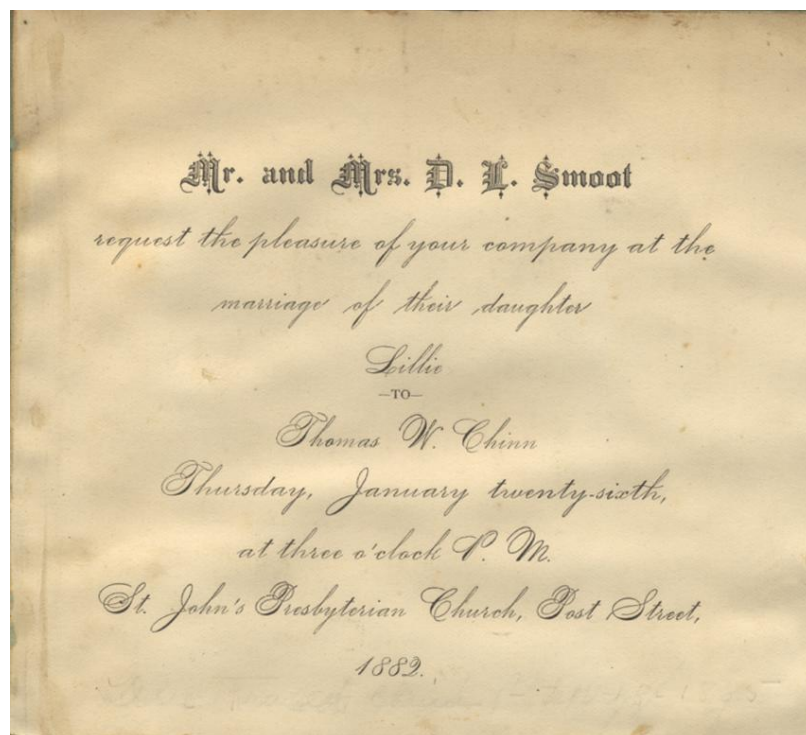 Mr. and Mrs. D. L. Smoot
request the pleasure of your company at the
marriage of their daughter
Lillie
—TO—
Thomas W. Chinn
Thursday, January twenty-sixth,
at three o'clock P. M.
St. John's Presbyterian Church, Post Street,
1882.